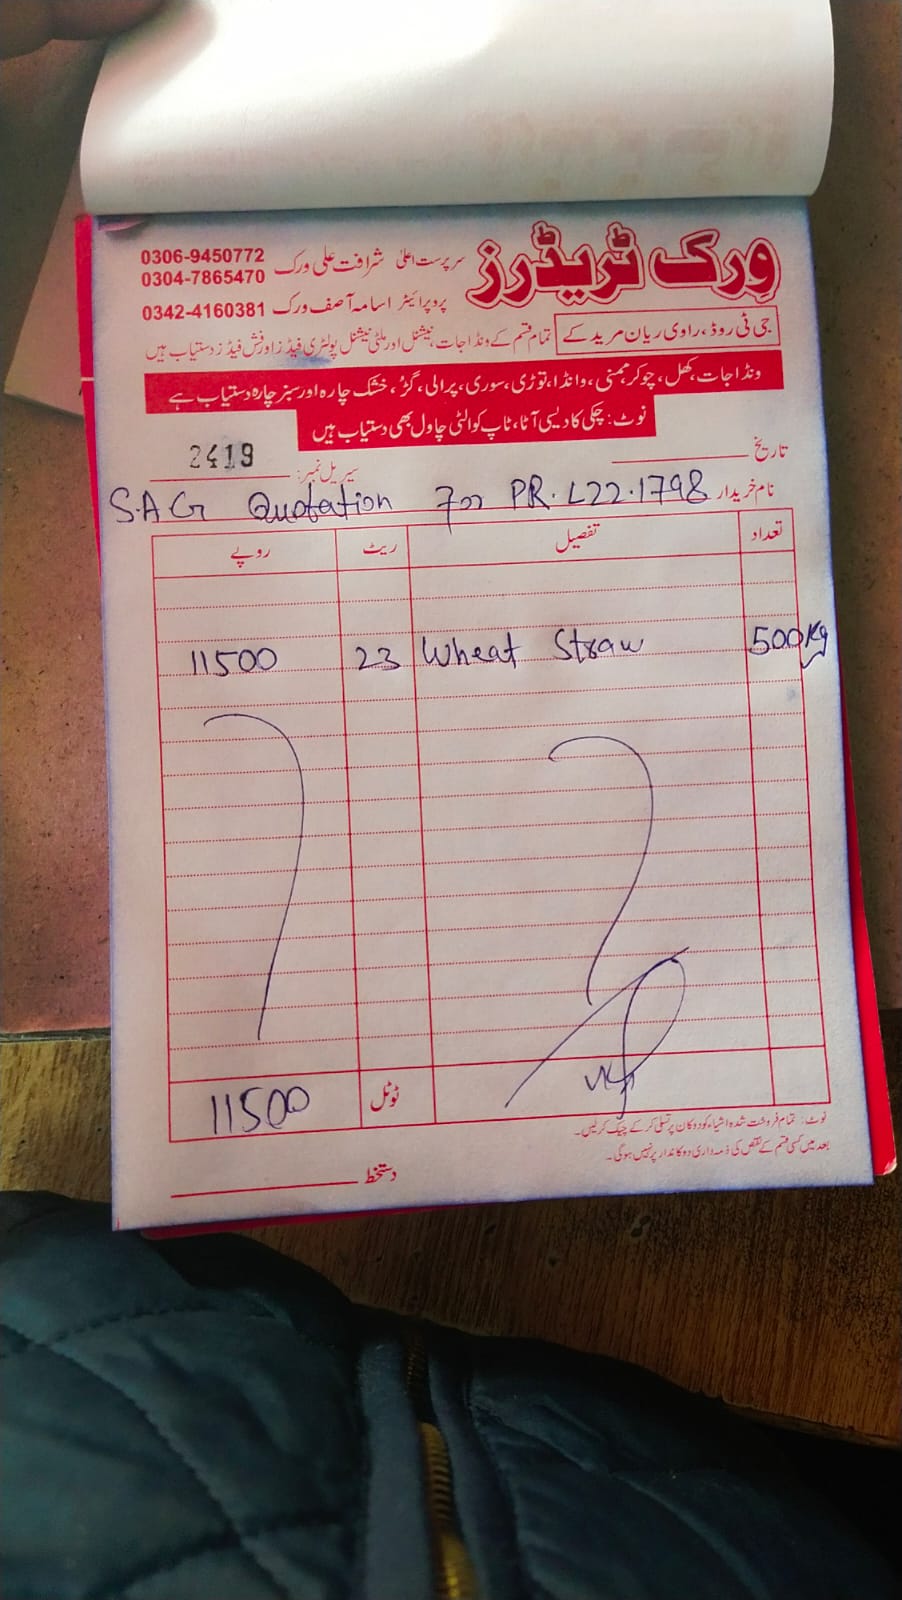 ورک ٹریڈرز
سرپرست اعلیٰ شرافت علی ورک 0306-9450772
0304-7865470
پروپرائیٹر اسامہ آصف ورک 0342-4160381
جی ٹی روڈ، راوی ریان مریدکے
تمام قسم کے ونڈا جات، نیشنل اور ملٹی نیشنل پولٹری فیڈز اور فش فیڈز دستیاب ہیں
ونڈا جات، کھل، چوکر، ممنی، وانڈا، توڑی، سوری، پرالی، گڑ، خشک چارہ اور سبز چارہ دستیاب ہے
نوٹ: چکی کا دیسی آٹا، ٹاپ کوالٹی چاول بھی دستیاب ہیں
تاریخ
سیریل نمبر: 2419
نام خریدار S.A.G Quotation For PR. L22.1798
تعداد تفصیل ریٹ روپے
500kg Wheat Straw 23 11500
ٹوٹل 11500
نوٹ: تمام فروخت شدہ اشیاء کو دوکان پر تسلی کر کے چیک کر لیں۔
بعد میں کسی قسم کے نقص کی ذمہ داری دوکاندار پر نہیں ہوگی۔
دستخط